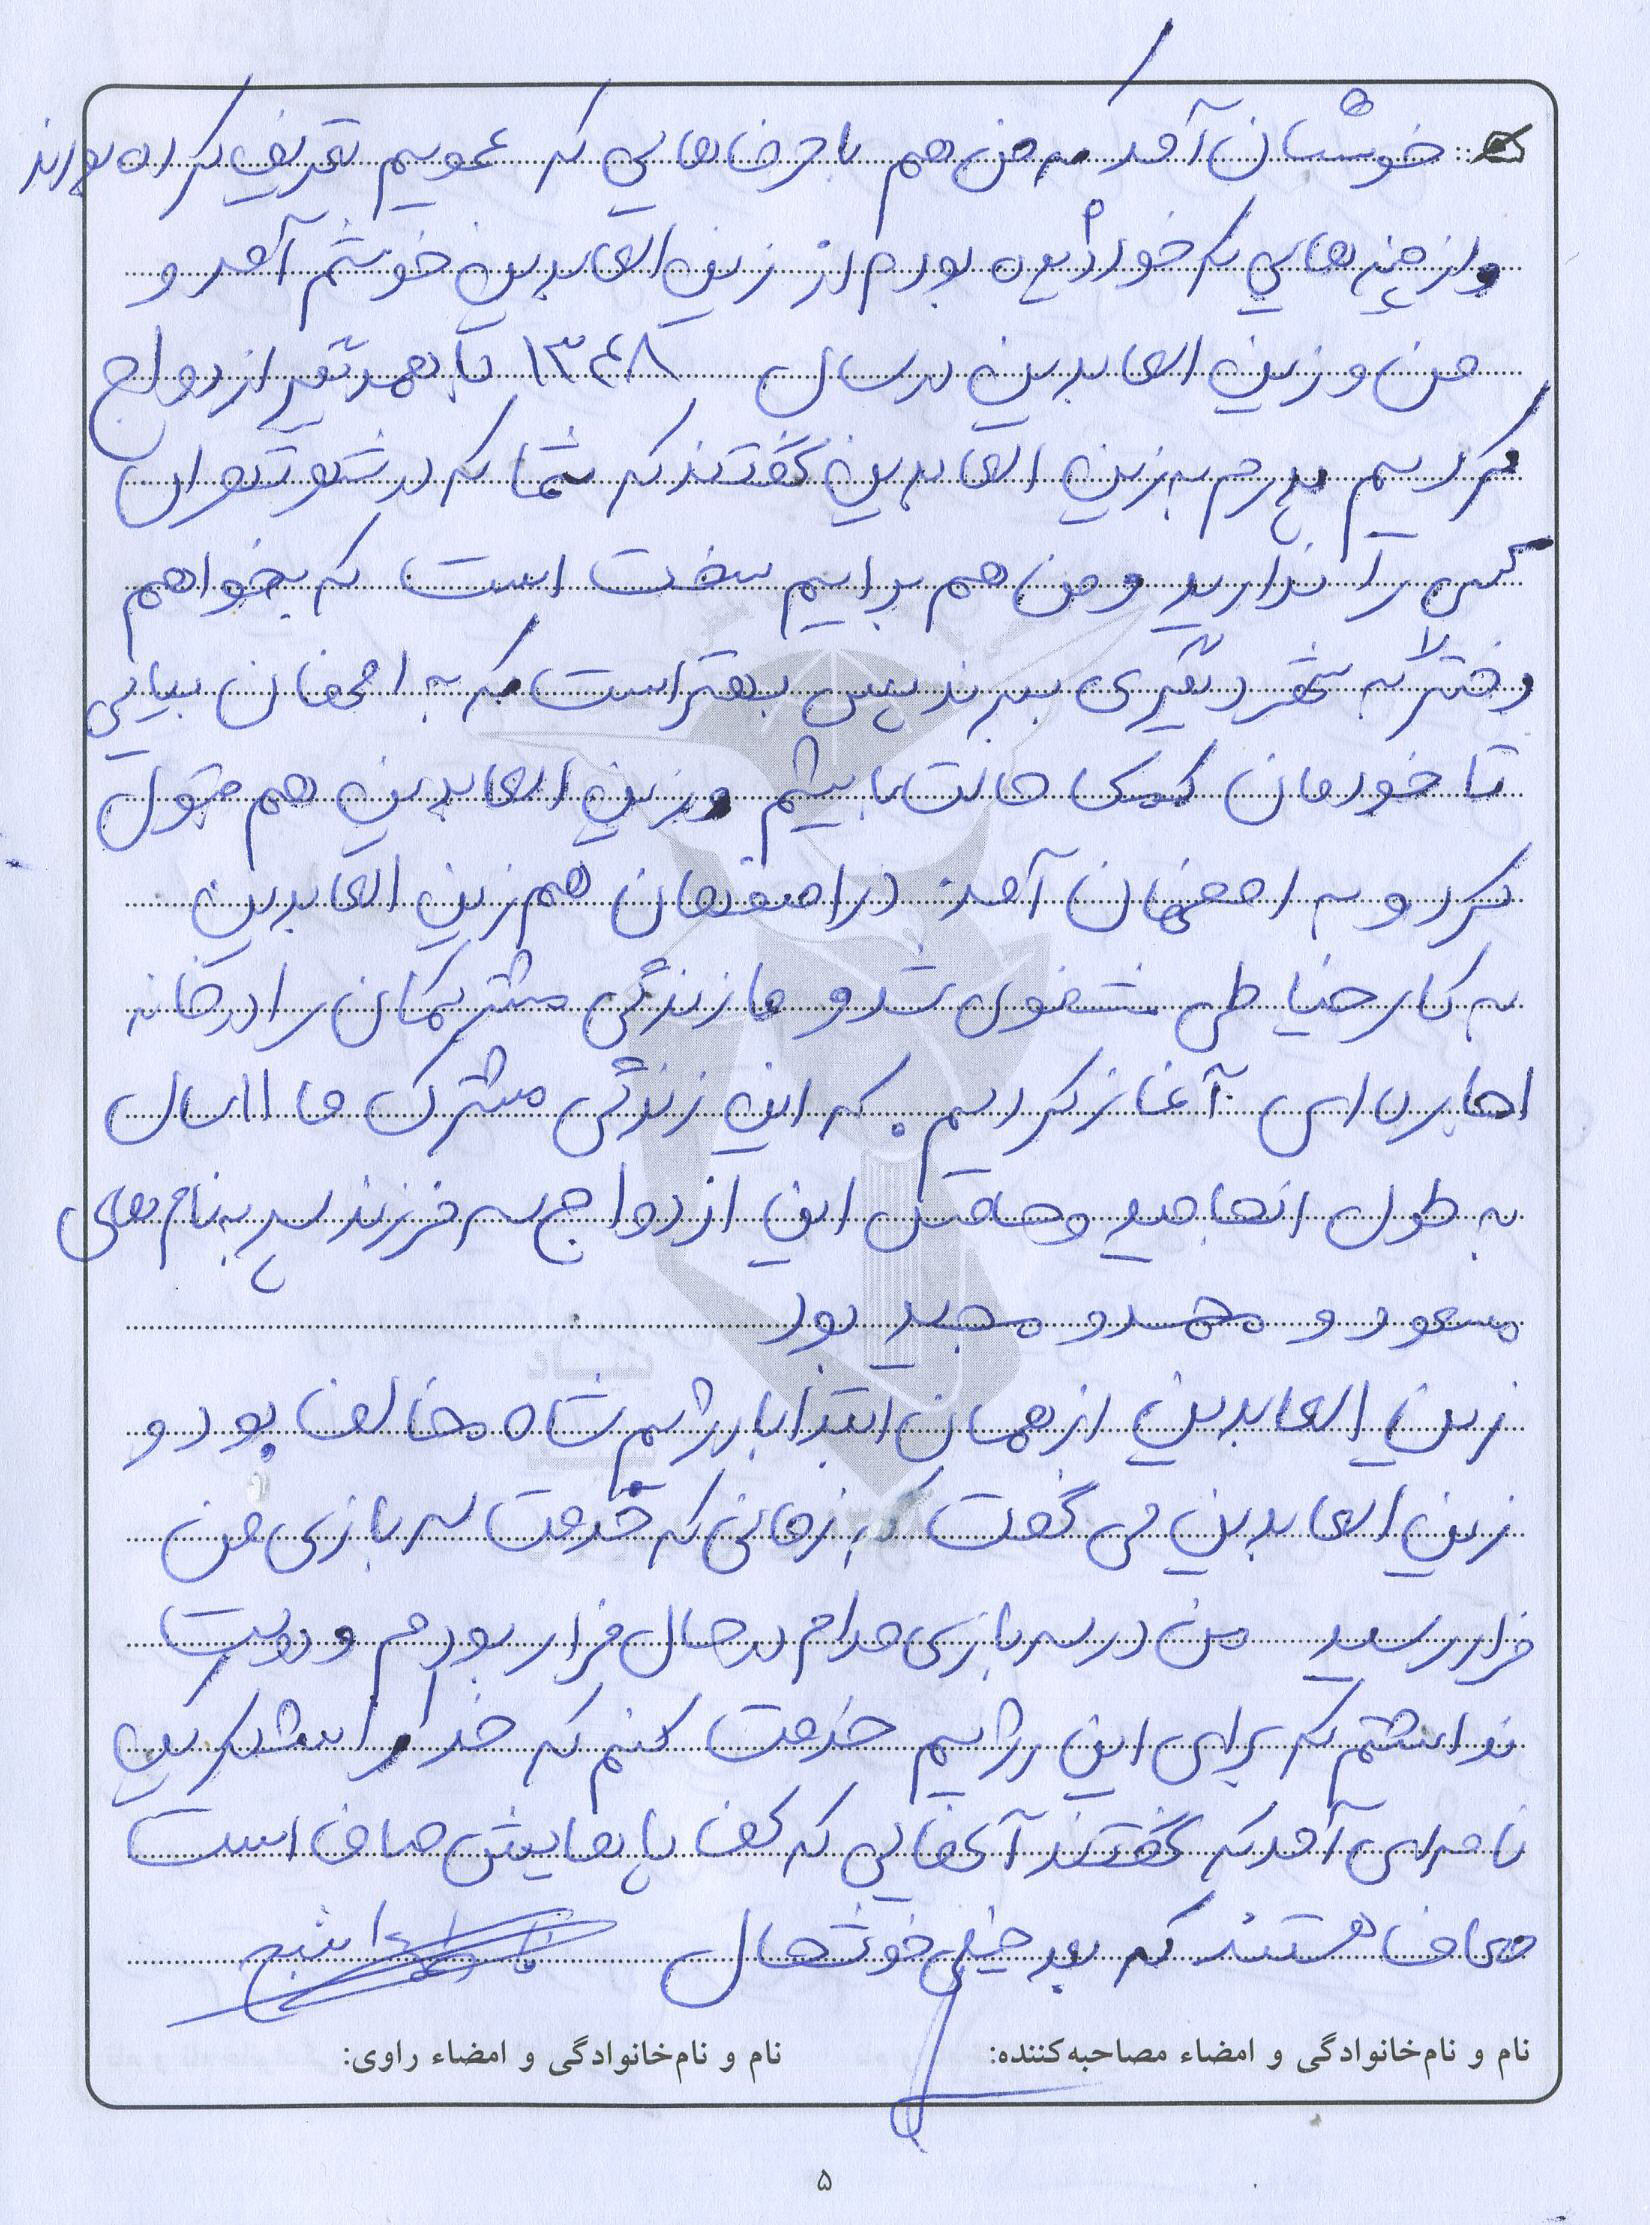 خوششان آمد که من هم با حرفهایی که عمویم تعریف کرده بودند
و از چیزهایی که خود دیده بودم از زین العابدین خوشم آمد و
من و زین العابدین در سال ۱۳۴۸ با همدیگر ازدواج
کردیم پدرم به زین العابدین گفتند که شما که در شهر تهران
کسی را ندارید و من هم برایم سخت است که بخواهم
دخترم را به شهر دیگری ببرند پس بهتر است که به اصفهان بیایی
تا خودمان کمک حالت باشیم و زین العابدین هم قبول
کرد و به اصفهان آمد در اصفهان هم زین العابدین
به کار خیاطی مشغول شد و ما زندگی مشترکمان را در خانه
اجاره ای آغاز کردیم که این زندگی مشترک ما ۱۱ سال
به طول انجامید و حاصل این ازدواج سه فرزند پسر به نام های
مسعود و محمد و مجید بود
زین العابدین از همان ابتدا با رژیم شاه مخالف بود و
زین العابدین می گفت که زمانی که خدمت سربازی من
فرار رسید من در سربازی مدام در حال فرار بودم و دوست
نداشتم که برای این رژیم خدمت کنم که خدا را شکر یک
نامه ای آمد که گفتند آنهایی که کف پاهایش صاف است
معاف هستند که بعد خیلی خوشحال
نام و نام‌خانوادگی و امضاء مصاحبه‌کننده: نام و نام‌خانوادگی و امضاء راوی:
۵